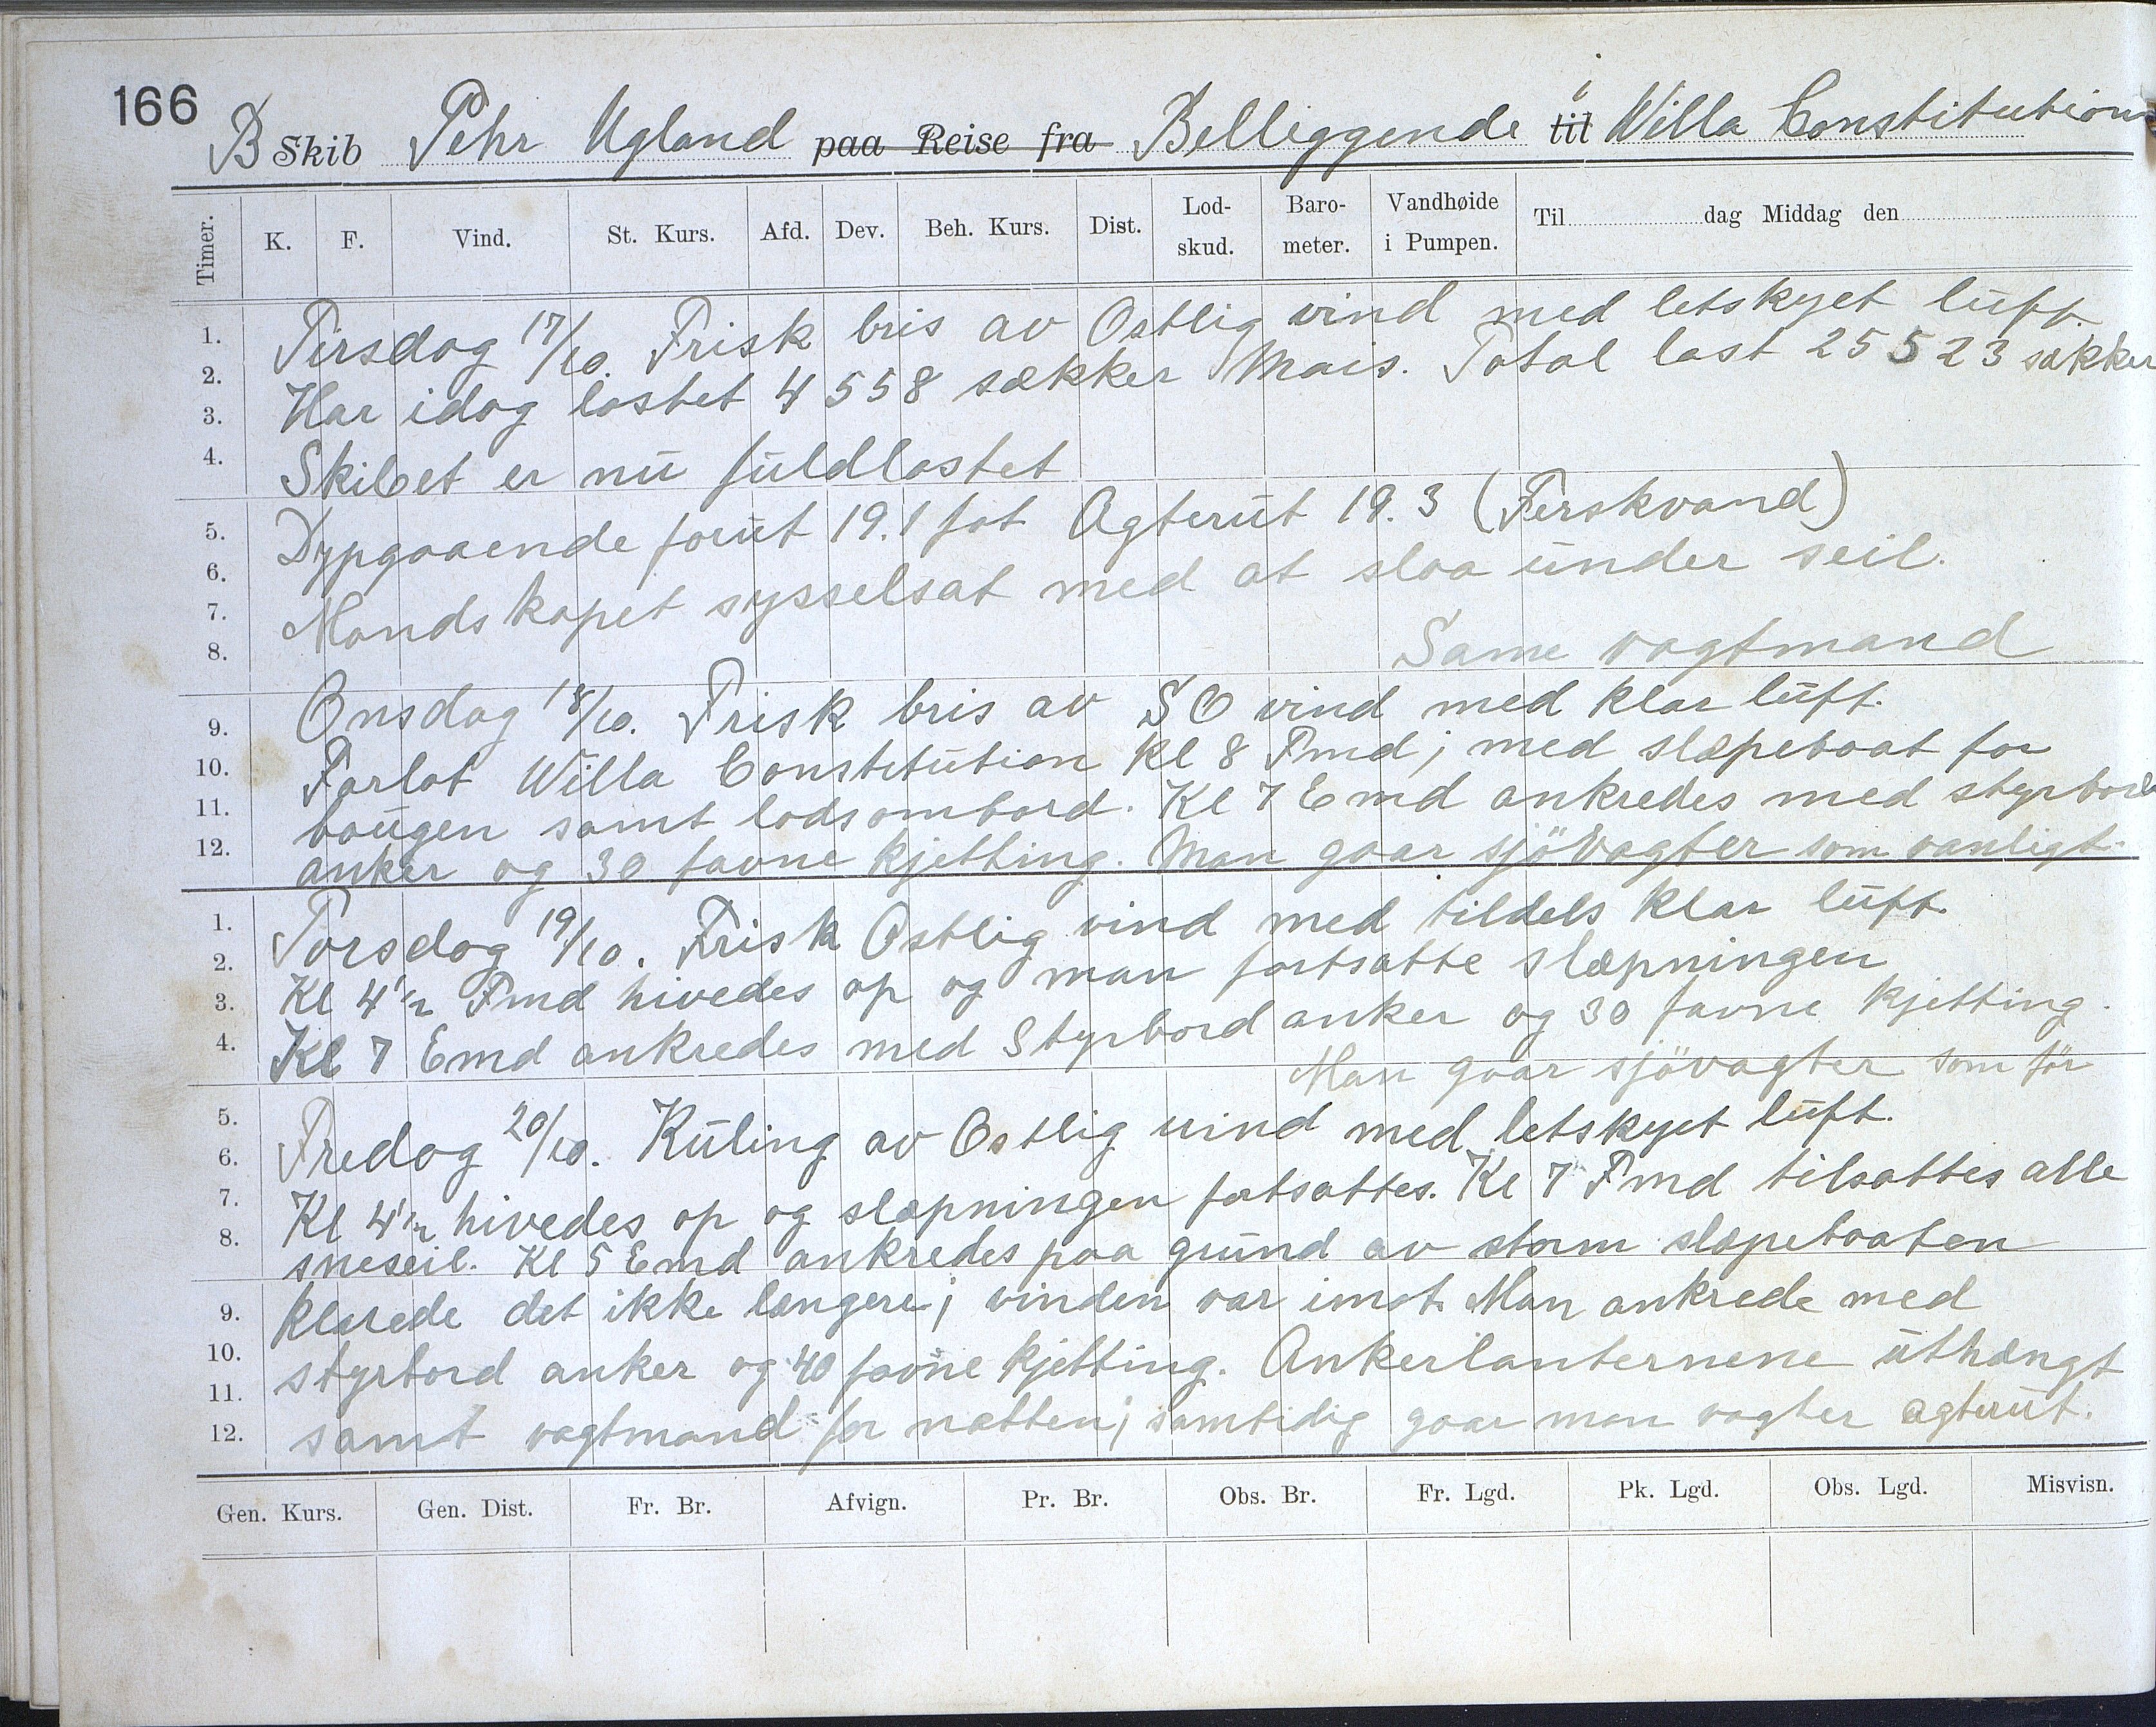 166
B Skib Pehr Ugland paa Reise fra Belliggende til i Willa Constitution
Timer. K. F. Vind. St. Kurs. Afd. Dev. Beh. Kurs. Dist. Lod-skud. Baro-meter. Vandhøide i Pumpen. Til dag Middag den
1. Tirsdag 17/10. Frisk bris av Ostlig vind med letskyet luft.
2. Har idag lastet 4558 sækker Mais. Total last 25523 sækker
3.
4. Skibet er nu fuldlastet
5. Dypgaaende forut 19.1 fot Agterut 19.3 (Ferskvand)
6.
7. Mandskapet sysselsat med at slaa under seil.
8. Same vagtmand
9. Onsdag 18/10. Frisk bris av SO vind med klar luft.
10. Forlot Willa Constitution Kl 8 Fmd; med slæpebaat for
11. bougen samt lodsombord. Kl 7 Emd ankredes med styrbord
12. anker og 30 favne kjetting. Man gaar sjövagter som vanligt.
1. Torsdag 19/10. Frisk Ostlig vind med tildels klar luft.
2. Kl 4 1/2 Fmd hivedes op og man fortsatte slæpningen
3.
4. Kl 7 Emd ankredes med Styrbord anker og 30 favne kjetting.
Man gaar sjövagter som för
5.
6. Fredag 20/10. Kuling av Ostlig vind med letskyet luft.
7. Kl 4 1/2 hivedes op og slæpningen fortsattes. Kl 7 Fmd tilsattes alle
8. sneseil. Kl 5 Emd ankredes paa grund av storm slæpebaaten
9. klarede det ikke længere; vinden var imot. Man ankrede med
10. styrbord anker og 40 favne kjetting. Ankerlanternene uthængt
11.
12. samt vagtmand for natten; samtidig gaar man vagter agterut.
Gen. Kurs. Gen. Dist. Fr. Br. Afvign. Pr. Br. Obs. Br. Fr. Lgd. Pk. Lgd. Obs. Lgd. Misvisn.